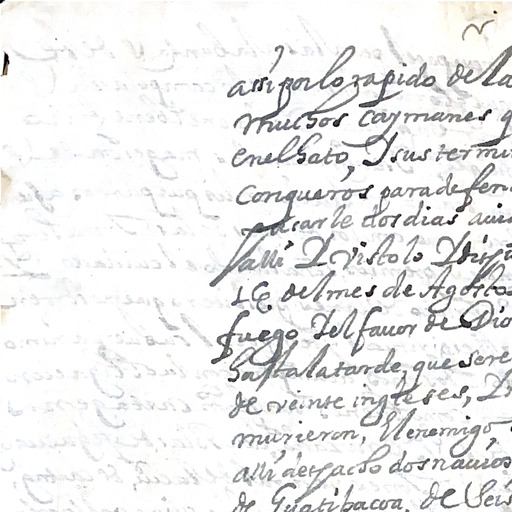 assi por lo rapido de la
muchos caymanes q
en el hato, y sus termi
con queros para defen
pasarle dos dias avia
alli y visto lo
16 del mes de Agosto
fuego y el favor de Dio
hasta la tarde, que se re
de veinte ingleses, y
murieron, el enemigo,
alli despacho dos navios
de Guatibacoa, de seis